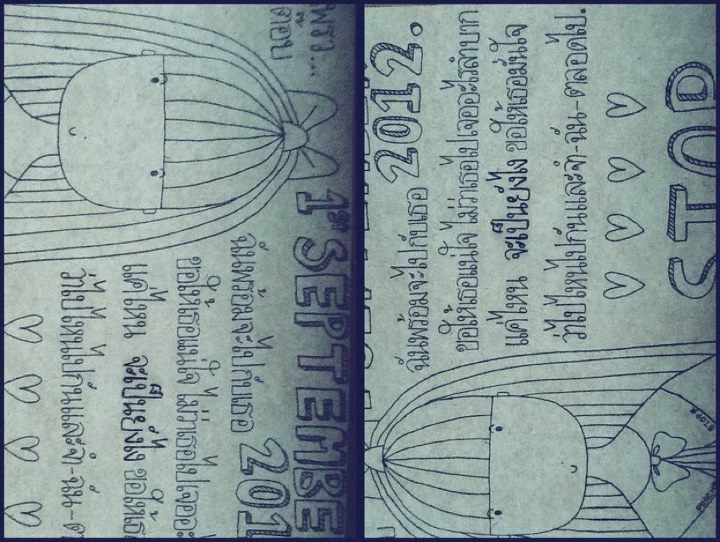 1st SEPTEMBE
ฉันพร้อมจะไปกับเธอ 201
ขอให้เธอแน่ใจ ไม่ว่าเธอไปเจออะ
แค่ไหน จะเป็นยังไง ขอให้เธ
ว่าไปไหนไปกันและจำ-ฉัน-ต
ฉันพร้อมจะไปกับเธอ 2012.
ขอให้เธอแน่ใจ ไม่ว่าเธอไปเจออะไรลำบาก
แค่ไหน จะเป็นยังไง ขอให้เธอมั่นใจ
ว่าไปไหนไปกันและจำ-ฉัน-ตลอดไป.
STOP